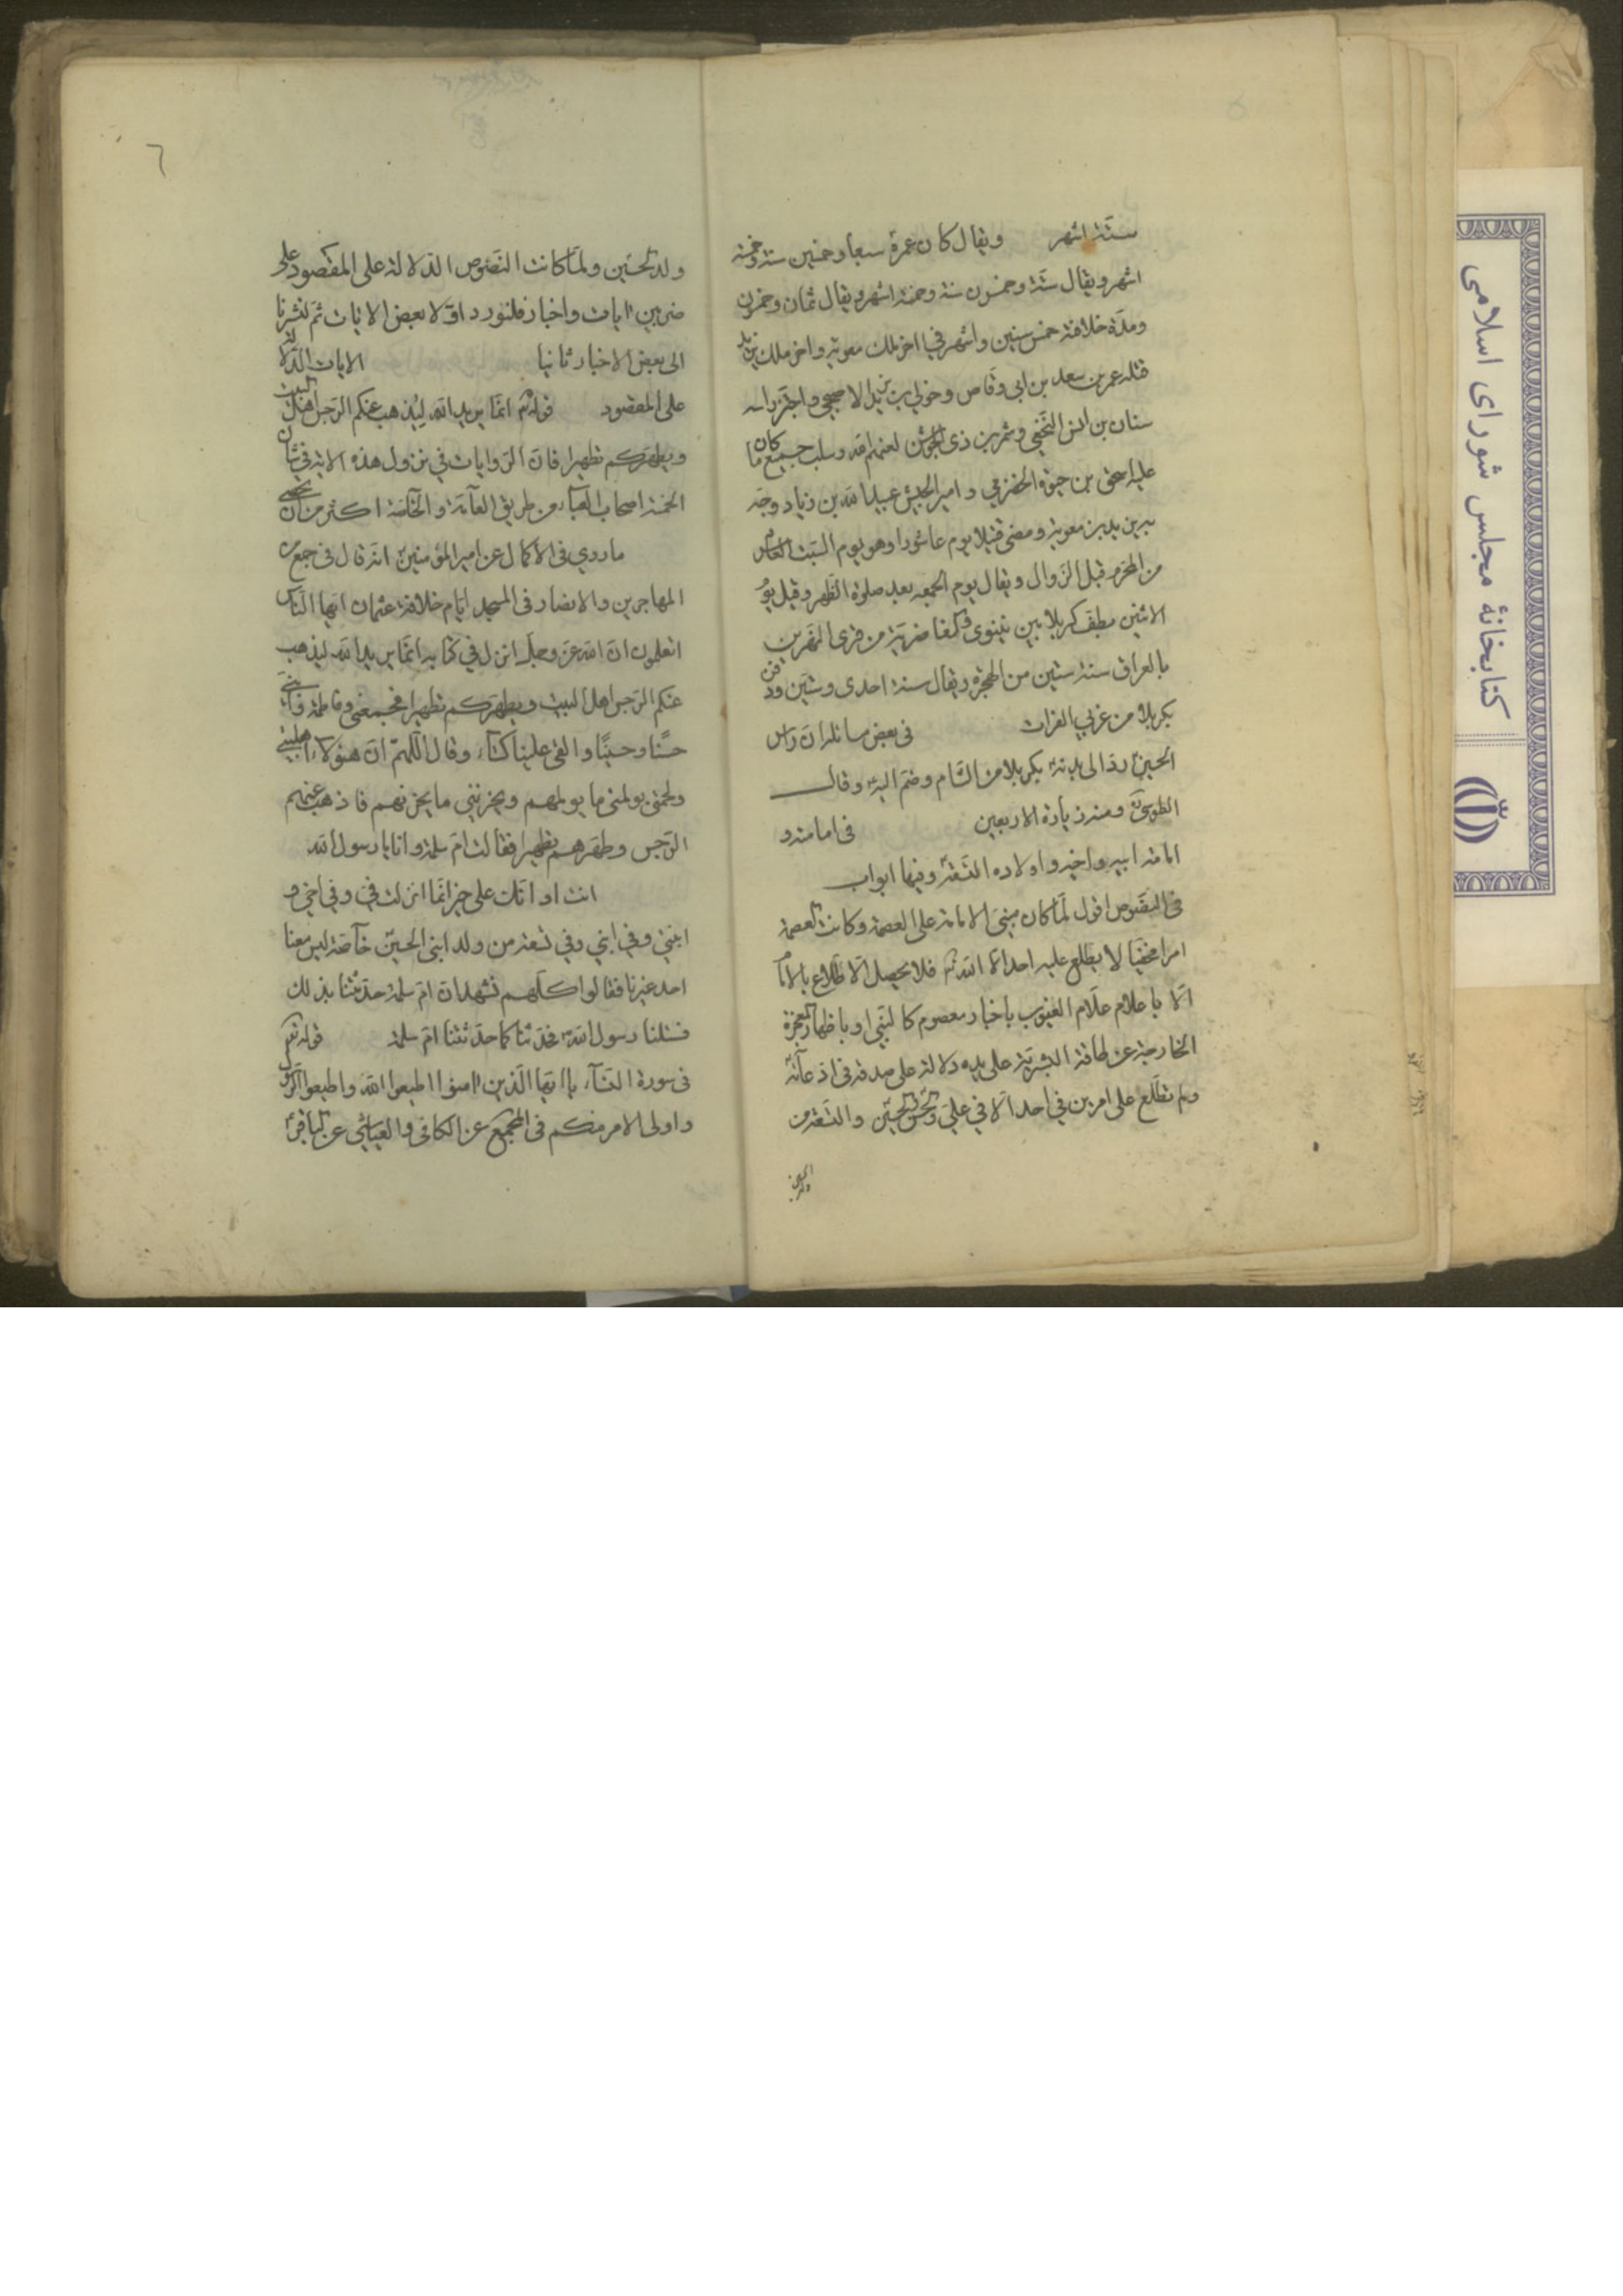 ستة اشهر ويقال كان عمره سبعا وخمسين سنة وخمسة
اشهر ويقال ستة وخمسون سنة وخمسة اشهر ويقال ثمان وخمسون
ومدة خلافته خمس سنين واشهر في اخر ملك معوية واخر ملك يزيد
قتله عمر بن سعد بن ابي وقاص وخولي بن يزيد الاصبحي واجتز راسه
سنان بن انس النخعي وشمر بن ذي الجوشن لعنهم الله وسلب جميع ما كان
عليه اسحق بن حيوة الحضرمي وامير الجيش عبيد الله بن زياد وجه
به يزيد بن معوية ومضى قتيلا يوم عاشورا وهو يوم السبت العاشر
من المحرم قبل الزوال ويقال يوم الجمعه بعد صلوة الظهر وقيل يوم
الاثنين بطف كربلا بين نينوى و غاضرية من قرى النهرين
بالعراق سنة ستين من الهجرة ويقال سنة احدى وستين ودفن
بكربلا من غربي الفرات في بعض مسائله ان راس
الحسين رد الى بدنه بكربلا من الشام وضم اليه وقال
الطوسي ومنه زيارة الاربعين في امامته و
امامة ابيه واخيه واولاده التسعة وفيها ابواب
في النصوص اقول لما كان مبنى الامامة على العصمة وكانت العصمة
امرا مخفيا لا يطلع عليه احد الا الله تع فلا يحصل الاطلاع بالامام
الا باعلام علام الغيوب باخبار معصوم كالنبي او باظهار المعجزة
الخارجة عن طاقة البشرية على يده دلالة على صدقه في ادعائه
ولم نطلع على امرين في احد الا في علي والحسن والحسين والتسعة من
ولد الحسين
٦
ولد الحسين ولما كانت النصوص الدلالة على المقصود على
ضربين ايات واخبار فلنورد اولا بعض الايات ثم لنشرنا
الى بعض الاخبار ثانيا الايات الدالة
على المقصود قوله تع انما يريد الله ليذهب عنكم الرجس اهل البيت
ويطهركم تطهيرا فان الروايات في نزول هذه الاية في شان
الخمسة اصحاب العباء من طريق العامة والخاصة اكثر من ان تحصى
ما روي في الاكمال عن امير المؤمنين انه قال في جمع من
المهاجرين والانصار في المسجد ايام خلافة عثمان ايها الناس
اتعلمون ان الله عز وجل انزل في كتابه انما يريد الله ليذهب
عنكم الرجس اهل البيت ويطهركم تطهيرا فجمعني وفاطمة وابني
حسنا وحسينا والقى علينا كساء وقال اللهم ان هؤلاء اهل بيتي
ولحمتي يولمني ما يولمهم ويحزنني ما يحزنهم فاذهب عنهم
الرجس وطهرهم تطهيرا فقالت ام سلمة وانا يا رسول الله
انت او انك على خير انما انزلت في وفي اخي و
ابنتي وفي ابني وفي تسعة من ولد ابني الحسين خاصة ليس معنا
احد غيرنا فقالوا كلهم نشهد ان ام سلمة حدثتنا بذلك
فسئلنا رسول الله فحدثنا كما حدثتنا ام سلمة قوله تع
في سورة النساء يا ايها الذين امنوا اطيعوا الله واطيعوا الرسول
واولى الامر منكم في المجمع عن الكافي والعياشي عن الباقر
كتابخانهٔ مجلس شورای اسلامی